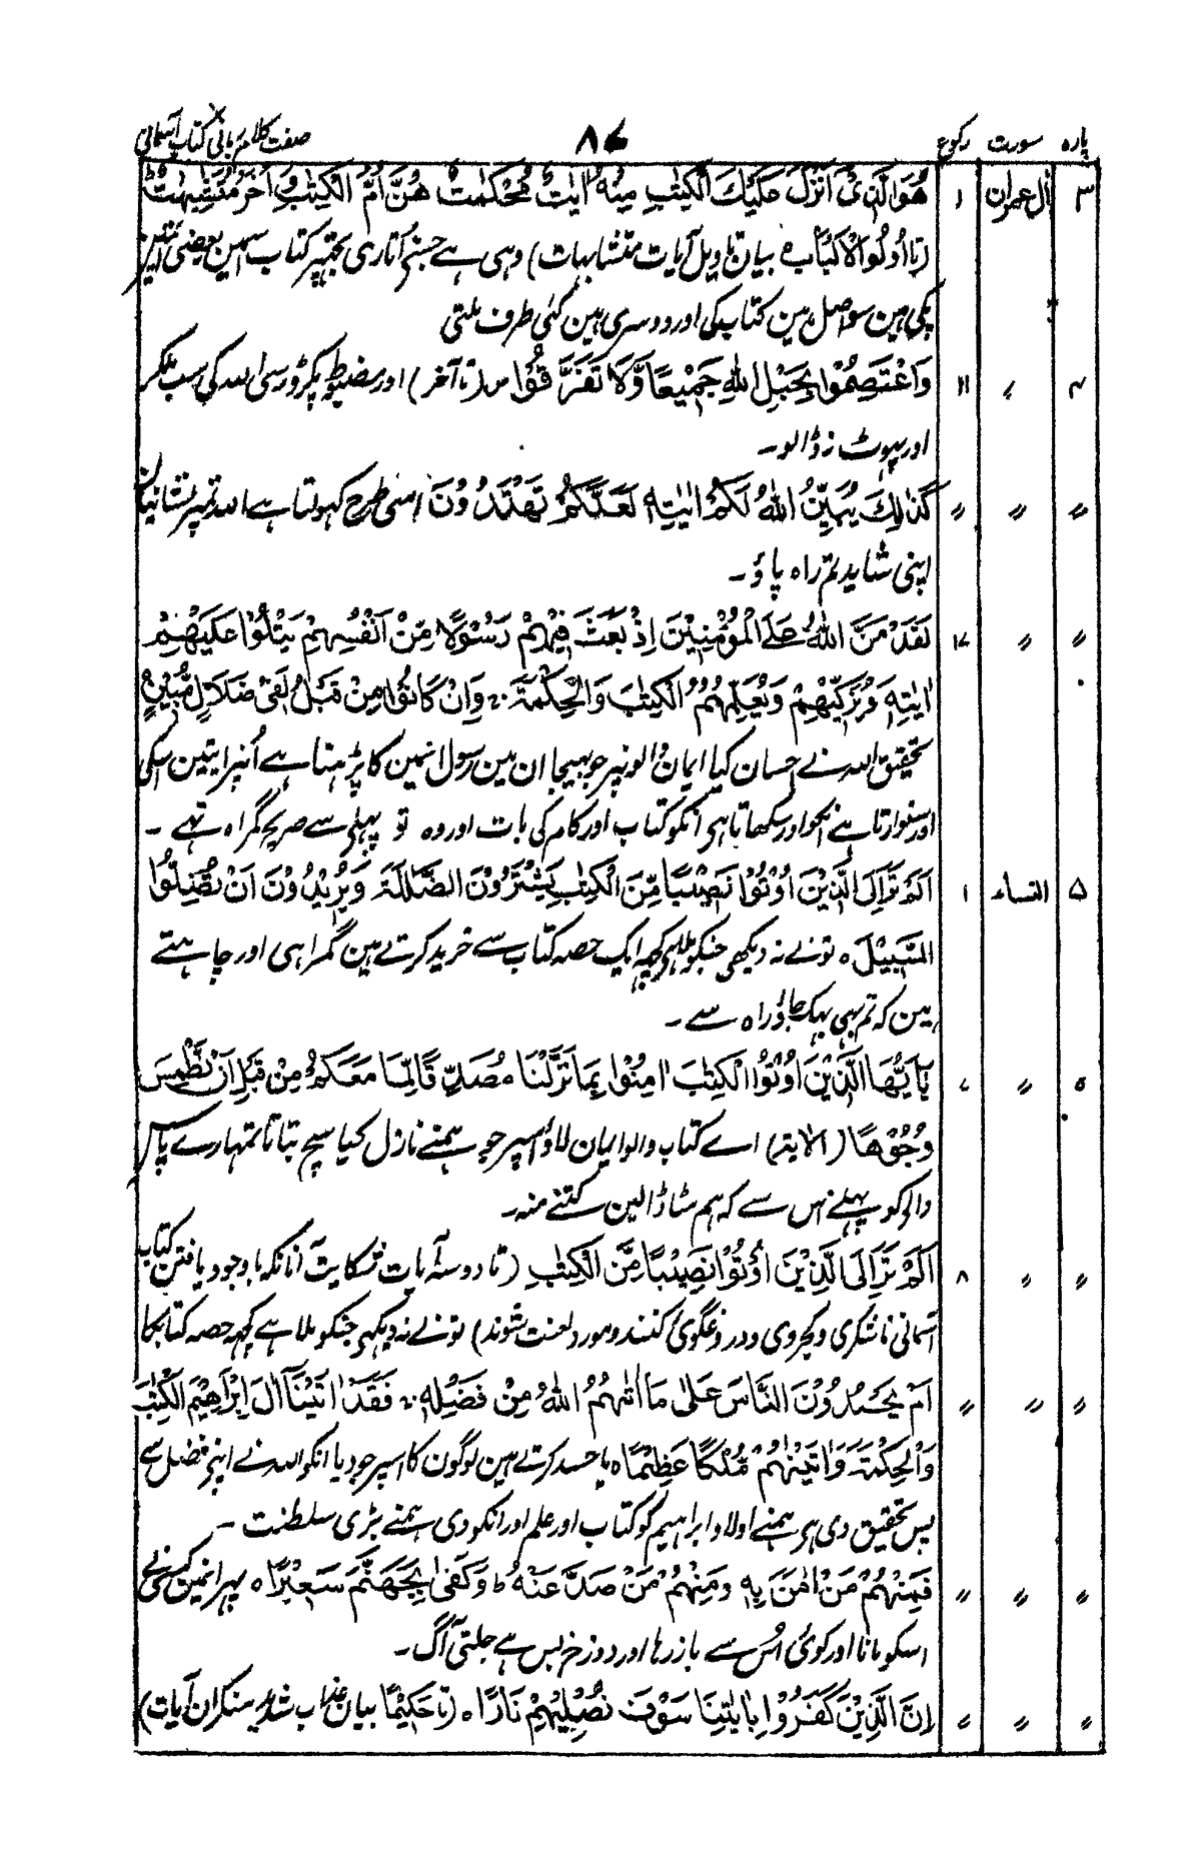 پارہ سورت رکوع ۸۷ صفت کلام ربانی کتاب آسمانی
۳ آل عمران ۱ هُوَ الَّذِیْ اَنْزَلَ عَلَیْكَ الْكِتٰبَ مِنْهُ اٰیٰتٌ مُّحْكَمٰتٌ هُنَّ اُمُّ الْكِتٰبِ وَ اُخَرُ مُتَشٰبِهٰتٌ ط
(تا اُولُوا الْاَلْبَاب ہ بیان تاویل آیات متشابہات) وہی ہے جسنے اتاری تجہپر کتاب اسمین بعضی آیتین
پکی ہین سو اصل ہین کتاب کی اور دوسری ہین کئی طرف ملتی
۴ ٫ ۱۱ وَاعْتَصِمُوْا بِحَبْلِ اللهِ جَمِیْعًا وَّلَا تَفَرَّقُوْا (تا آخر) اور مضبوط پکڑو رسی اللہ کی سب ملکر
اور پہوٹ نڈالو۔
〃 〃 〃 كَذٰلِكَ یُبَیِّنُ اللهُ لَكُمْ اٰیٰتِهٖ لَعَلَّكُمْ تَهْتَدُوْنَ اسی طرح کہولتا ہے اللہ تمپر نشانیان
اپنی شاید تم راہ پاؤ۔
〃 〃 ۱۷ لَقَدْ مَنَّ اللهُ عَلَی الْمُؤْمِنِیْنَ اِذْ بَعَثَ فِیْهِمْ رَسُوْلًا مِّنْ اَنْفُسِهِمْ یَتْلُوْا عَلَیْهِمْ
اٰیٰتِهٖ وَ یُزَكِّیْهِمْ وَ یُعَلِّمُهُمُ الْكِتٰبَ وَالْحِكْمَةَ ۚ وَ اِنْ كَانُوْا مِنْ قَبْلُ لَفِیْ ضَلَالٍ مُّبِیْنٍ
تحقیق اللہ نے احسان کیا ایمان والونپر جو بہیجا ان مین رسول انہین کا پڑہتا ہے اُنپر آیتین اسکی
اور سنوارتا ہے انکو اور سکھاتا ہی انکو کتاب اور کام کی بات اور وہ تو پہلے سے صریح گمراہ تہے ۔
۵ النساء ۱ اَلَمْ تَرَ اِلَی الَّذِیْنَ اُوْتُوْا نَصِیْبًا مِّنَ الْكِتٰبِ یَشْتَرُوْنَ الضَّلٰلَةَ وَ یُرِیْدُوْنَ اَنْ تَضِلُّوا
السَّبِیْلَ ہ تونے نہ دیکھی جنکو ملا ہی کچہ ایک حصہ کتاب سے خرید کرتے ہین گمراہی اور چاہتے
ہین کہ تم بہی بہک جاؤ راہ سے ۔
۵ 〃 ۷ یٰۤاَیُّهَا الَّذِیْنَ اُوْتُوا الْكِتٰبَ اٰمِنُوْا بِمَا نَزَّلْنَا مُصَدِّقًا لِّمَا مَعَكُمْ مِنْ قَبْلِ اَنْ نَّطْمِسَ
وُجُوْهًا (الایۃ) اے کتاب والو ایمان لاؤ اسپر جو ہمنے نازل کیا سچ بتاتا تمہارے پاس
والیکو پہلے اس سے کہ ہم مٹا ڈالین کتنے منہ۔
〃 〃 ۸ اَلَمْ تَرَ اِلَی الَّذِیْنَ اُوْتُوْا نَصِیْبًا مِّنَ الْكِتٰبِ (تا دو سہ آیات شکایت آنانکہ باوجود یافتن کتاب
آسمانی ناشکری و کجروی و دروغگوئی کنند و مورد لعنت شوند) تونے نہ دیکہے جنکو ملا ہے کچہ حصہ کتابکا
〃 〃 〃 اَمْ یَحْسُدُوْنَ النَّاسَ عَلٰی مَا اٰتٰهُمُ اللهُ مِنْ فَضْلِهٖ ۚ فَقَدْ اٰتَیْنَا اٰلَ اِبْرٰهِیْمَ الْكِتٰبَ
وَالْحِكْمَةَ وَاٰتَیْنٰهُمْ مُّلْكًا عَظِیْمًا ہ یا حسد کرتے ہین لوگون کا اسپر جو دیا انکو اللہ نے اپنے فضل سے
پس تحقیق دی ہی ہمنے اولاد ابراہیم کو کتاب اور علم اور انکو دی ہمنے بڑی سلطنت ۔
〃 〃 〃 فَمِنْهُمْ مَنْ اٰمَنَ بِهٖ وَمِنْهُمْ مَنْ صَدَّ عَنْهُ ط وَكَفٰی بِجَهَنَّمَ سَعِیْرًا ہ پہر انمین کسی نے
اسکو مانا اور کوئی اُس سے باز رہا اور دوزخ بس ہے جلتی آگ ۔
〃 〃 〃 اِنَّ الَّذِیْنَ كَفَرُوْا بِاٰیٰتِنَا سَوْفَ نُصْلِیْهِمْ نَارًا ہ (تا حَكِیْمًا بیان عذاب شدید منکران آیات)